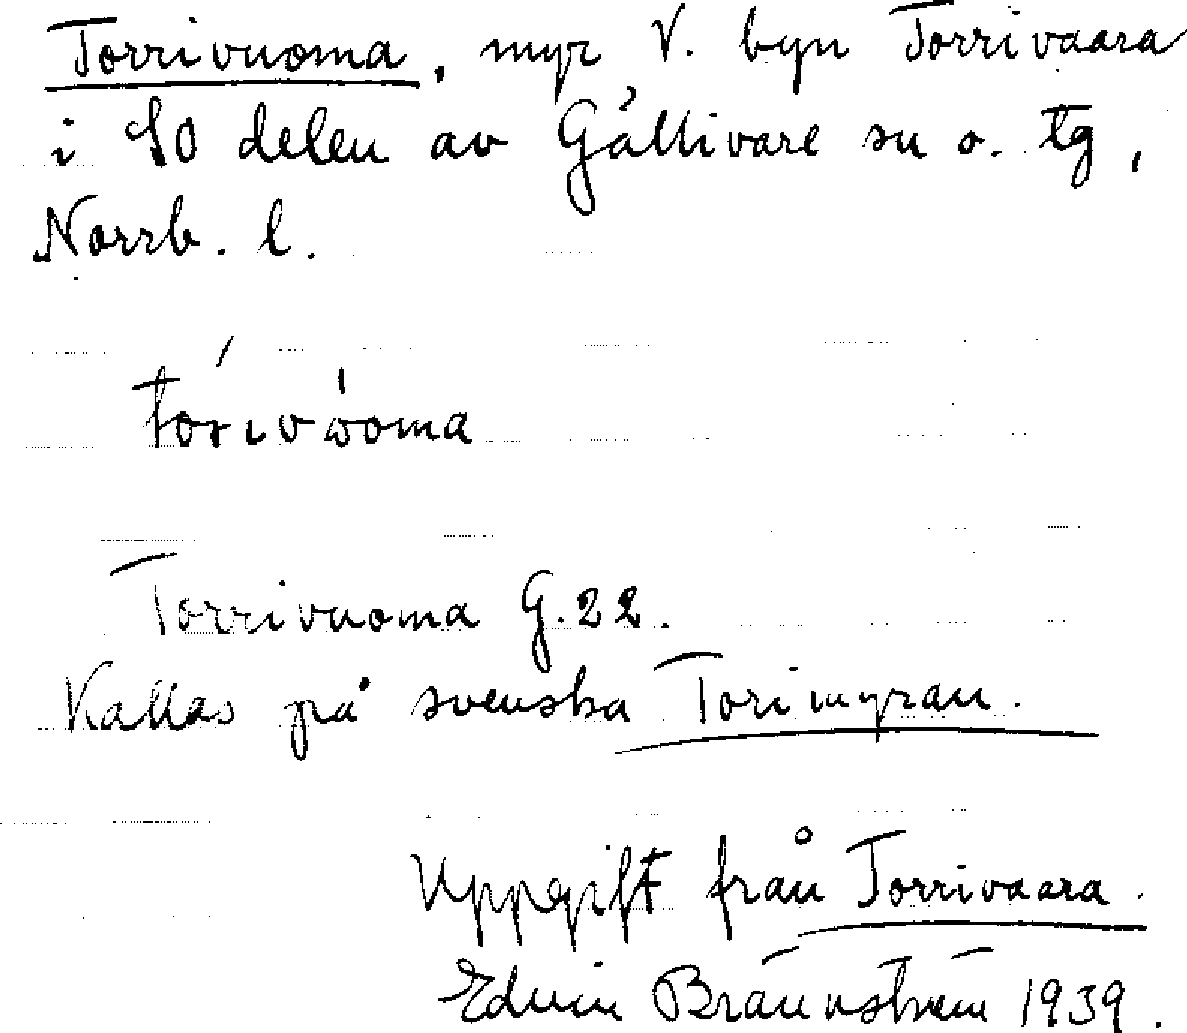 Torrivuoma, myr V. byn Torrivaara
i SO delen av Gällivare sn o. tg,
Norrb. l.
Torrivuoma G.22.
Kallas på svenska Torimyran.
Uppgift från Torrivaara.
Edvin Brännström 1939.